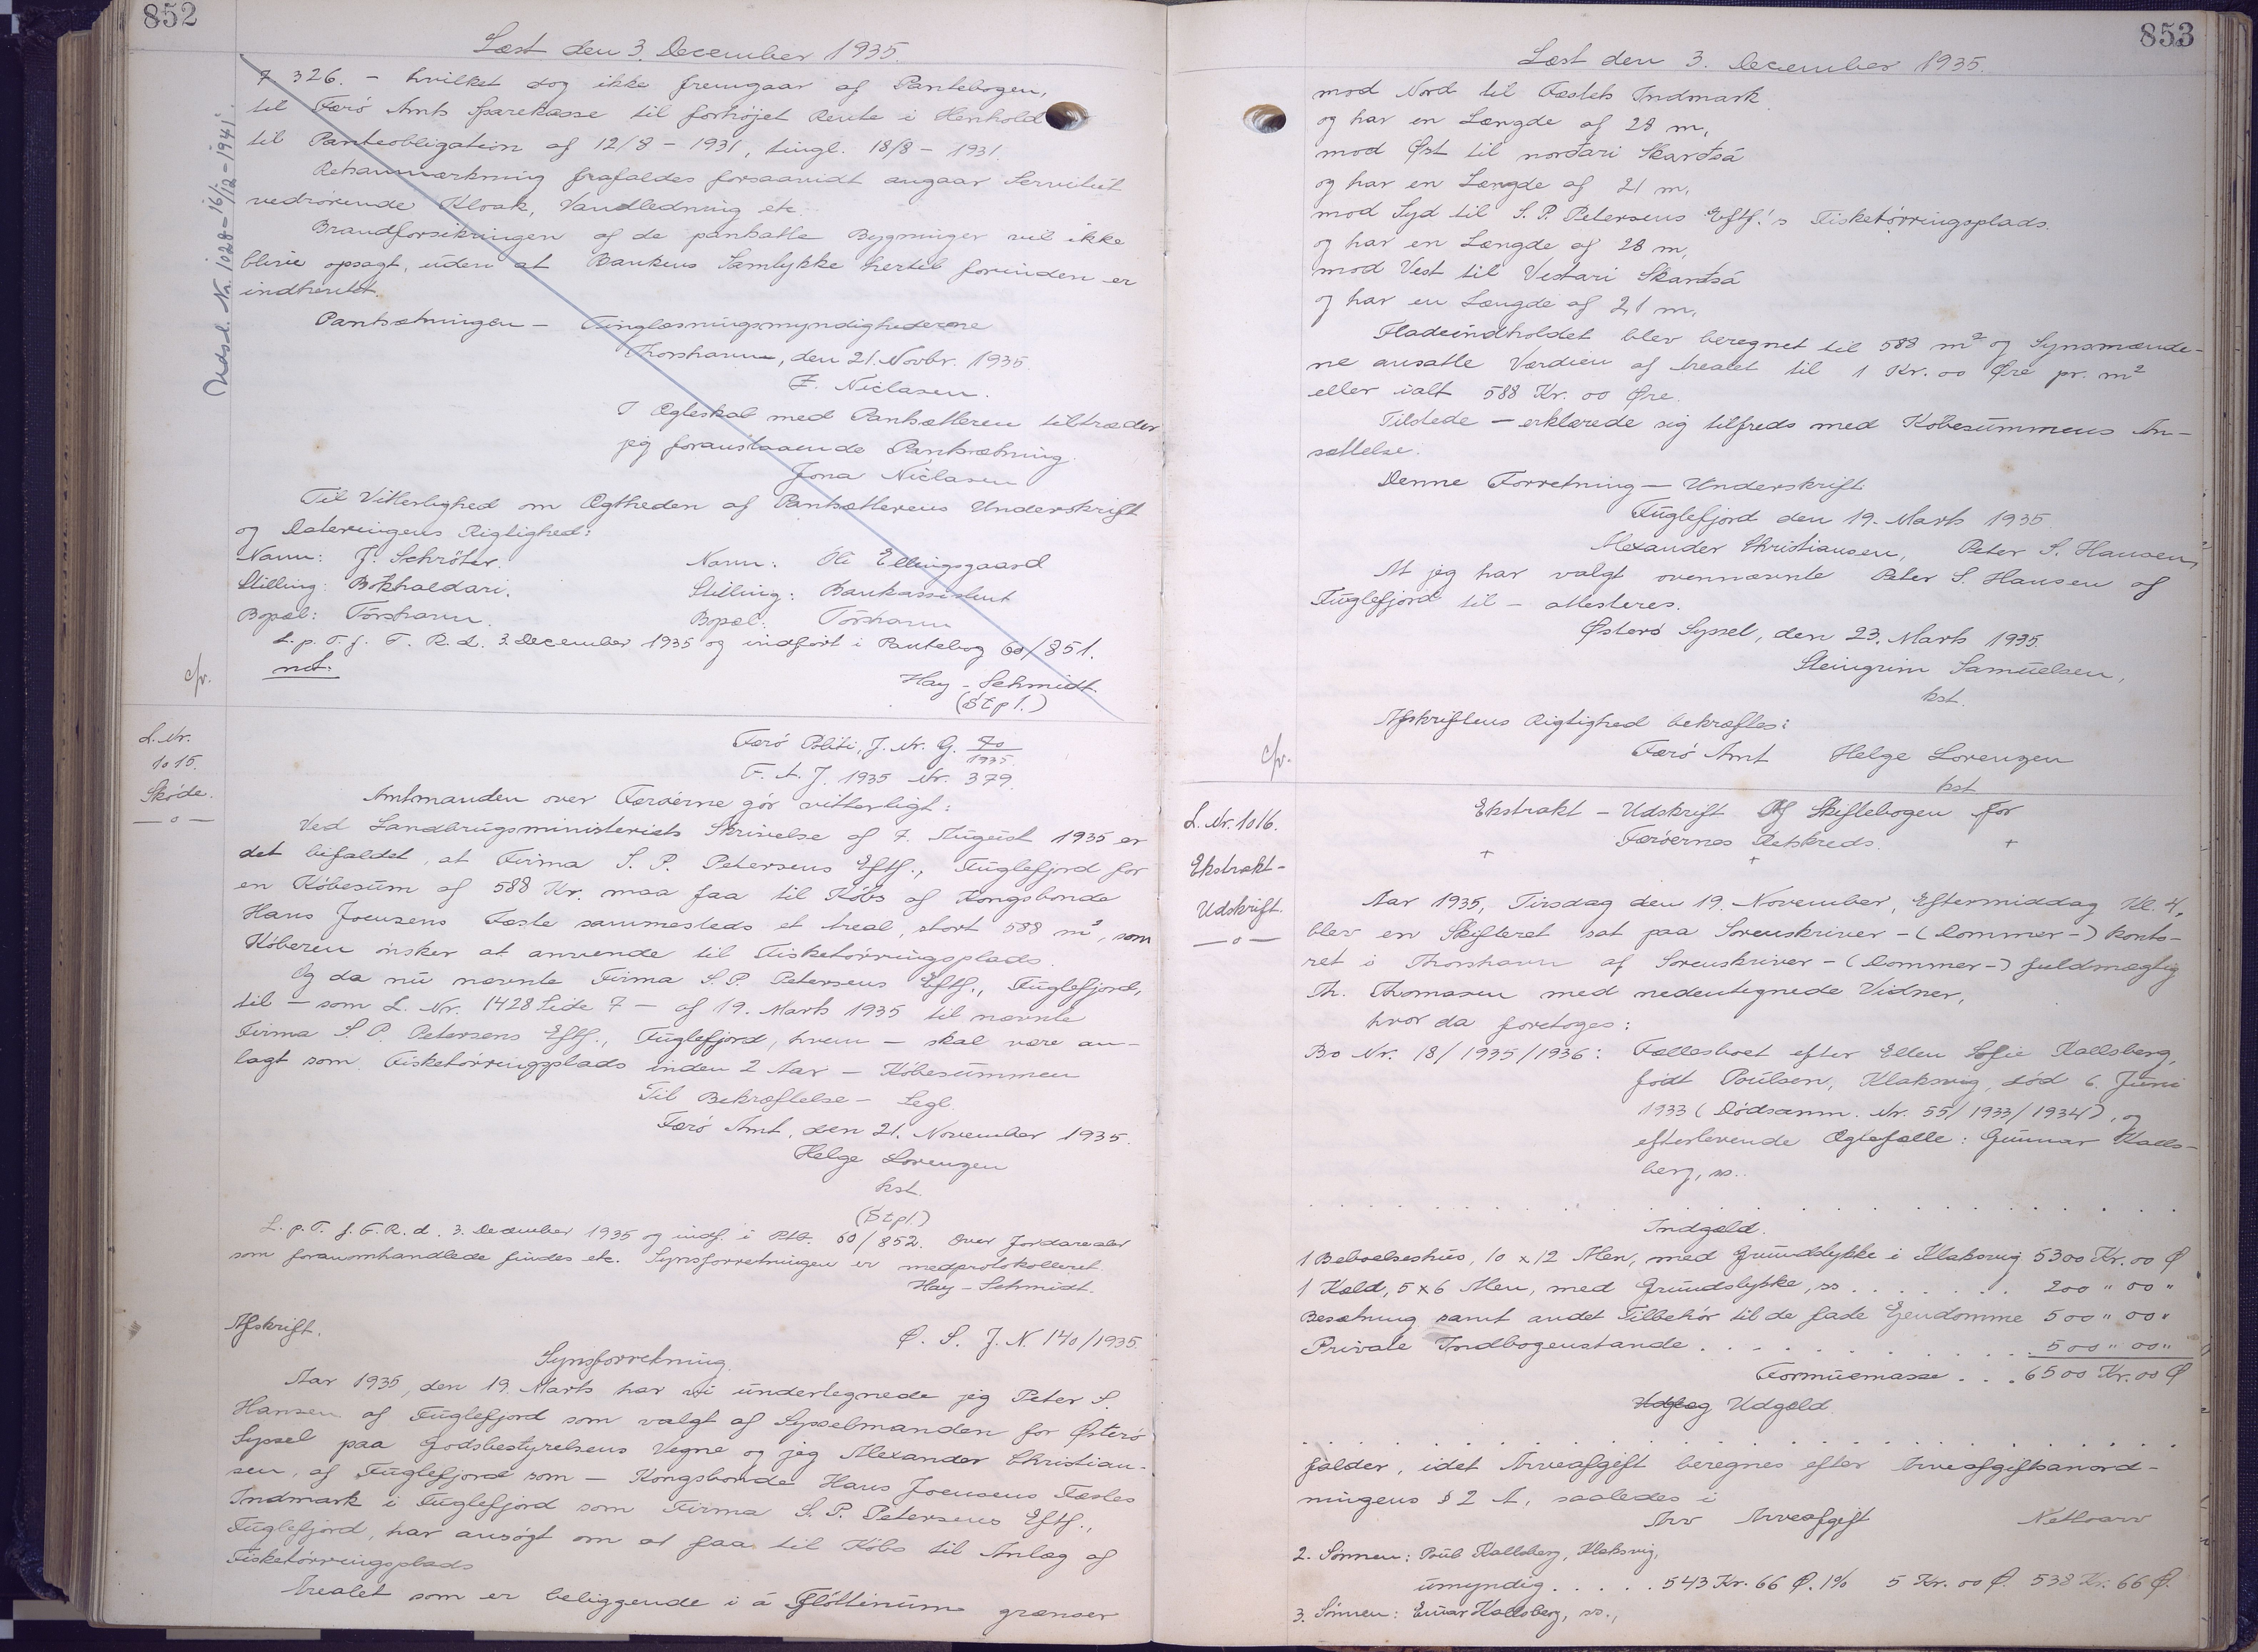 852
Læst den 3. December 1935.
7 326. - hvilket dog ikke fremgaar af Pantebogen,
til Færö Amts Sparekasse til forhöjet Rente i Henhold
til Panteobligation af 12/8 - 1931, tingl. 18/8 - 1931.
Retsanmærkning frafaldes forsaavidt angaar Servitut
vedrörende Kloak, Vandledning etc.
Brandforsikringen af de pantsatte Bygninger vil ikke
blive opsagt, uden at Bankens Samtykke hertil forinden er
indhentet.
Pantsætningen - Tinglæsningsmyndighederne
Thorshavn, den 21. Novbr. 1935.
F. Niclasen.
I Ægteskab med Pantsætteren tiltræder
jeg foranstaaende Pantsætning.
Jona Niclasen
Til Vitterlighed om Ægtheden af Pantsætterens Underskrift
og Dateringens Rigtighed:
Navn: J. Schröter. Navn: Oli Ellingsgaard
Stilling: Bokhaldari. Stilling: Bankassistent
Bopæl: Tórshavn. Bopæl: Tórshavn
L. p. T. f. F. R. d. 3. December 1935 og indfört i Pantebog 60/851.
not.
c/v.
Hay-Schmidt.
(Stpl.)
Udsl. Nr. 1028 - 16/12 - 1941.
L. Nr.
1015.
Sköde.
—o—
Færö Politi, J. Nr. G. 70/1935.
F. A. J. 1935 Nr. 379.
Amtmanden over Færöerne gör vitterligt:
Ved Landbrugsministeriets Skrivelse af 7. August 1935 er
det bifaldet, at Firma S. P. Petersens Eftf., Fuglefjord for
en Köbesum af 588 Kr. maa faa til Köbs af Kongsbonde
Hans Joensens Fæste sammesteds et Areal, stort 588 m², som
Köberen önsker at anvende til Fisketörringsplads.
Og da nu nævnte Firma S. P. Petersens Eftf., Fuglefjord,
til - som L. Nr. 1428 Side 7 - af 19. Marts 1935 til nævnte
Firma S. P. Petersens Eftf., Fuglefjord, hvem - skal være an-
lagt som Fisketörringsplads inden 2 Aar - Köbesummen
Til Bekræftelse - Segl.
Færö Amt, den 21. November 1935.
Helge Lorenzen
kst.
(Stpl.)
L. p. T. f. F. R. d. 3. December 1935 og indf. i Ptb. 60/852. Over Jordarealer
som foranomhandlede findes etc. Synsforretningen er medprotokolleret.
Hay-Schmidt.
Afskrift.
Ø. S. J. N. 140/1935.
Synsforretning.
Aar 1935, den 19. Marts har vi undertegnede jeg Peter S.
Hansen af Fuglefjord som valgt af Sysselmanden for Østerö
Syssel paa Godsbestyrelsens Vegne og jeg Alexander Christian-
sen, af Fuglefjord som - Kongsbonde Hans Joensens Fæstes
Indmark i Fuglefjord som Firma S. P. Petersens Eftf.,
Fuglefjord, har ansögt om at faa til Köbs til Anlæg af
Fisketörringsplads
Arealet som er beliggende i á Fløttinum grænser
853
Læst den 3. December 1935.
mod Nord til Fæstets Indmark.
og har en Længde af 28 m,
mod Øst til norðari Skarðsá
og har en Længde af 21 m,
mod Syd til S. P. Petersens Eftf.'s Fisketörringsplads.
og har en Længde af 28 m,
mod Vest til Vestari Skarðsá
og har en Længde af 21 m,
Fladeindholdet blev beregnet til 588 m² og Synsmænde-
ne ansatte Værdien af Arealet til 1 Kr. 00 Øre pr. m²
eller ialt 588 Kr. 00 Øre.
Tilstede - erklærede sig tilfreds med Köbesummens An-
sættelse.
Denne Forretning - Underskrift.
Fuglefjord den 19. Marts 1935.
Alexander Christiansen, Peter S. Hansen,
At jeg har valgt ovennævnte Peter S. Hansen af
Fuglefjord til - attesteres.
Østerö Syssel, den 23. Marts 1935.
Steingrim Samuelsen,
kst.
Afskriftens Rigtighed bekræftes:
c/v.
Færö Amt Helge Lorenzen
kst
L. Nr. 1016.
Ekstrakt-
Udskrift.
—o—
Ekstrakt - Udskrift Af Skiftebogen for
Færöernes Retskreds.
Aar 1935, Tirsdag den 19. November, Eftermiddag Kl. 4,
blev en Skifteret sat paa Sorenskriver-(Dommer-) konto-
ret i Thorshavn af Sorenskriver-(Dommer-) fuldmægtig
Th. Thomasen med nedentegnede Vidner,
hvor da foretoges:
Bo Nr. 18/1935/1936: Fællesboet efter Ellen Sofie Kallsberg,
födt Poulsen, Klaksvig, död 6. Juni
1933 (Dödsanm. Nr. 55/1933/1934), og
efterlevende Ægtefælle: Gunnar Kalls-
berg, ss..
Indgæld.
1 Beboelseshus, 10 x 12 Alen, med Grundstykke i Klaksvig 5300 Kr. 00 Ø
1 Kæld, 5 x 6 Alen, med Grundstykke, ss . . . . . . . 200 " 00 "
Besætning samt andet Tilbehör til de faste Ejendomme 500 " 00 "
Private Indbogenstande . . . . . . . . . . . 500 " 00 "
Formuemasse . . . 6500 Kr. 00 Ø
Udlæg Udgæld.
falder, idet Arveafgift beregnes efter Arveafgiftsanord-
ningens § 2 A, saaledes i
Arv Arveafgift Nettoarv
2. Sönnen: Poul Kallsberg, Klaksvig,
umyndig . . . . . 543 Kr. 66 Ø. 1% 5 Kr. 00 Ø. 538 Kr. 66 Ø.
3. Sönnen: Einar Kallsberg, ss.,